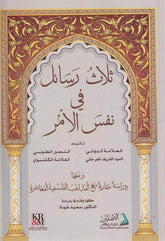 ثلاث رسائل
في
نفس الأمر
تأليف
العلامة الدواني
النصير الطوسي
السيد الشريف الجرجاني
العلامة الكلنبوي
ومعها
دراسة مقارنة مع المذاهب الفلسفية المعاصرة
حققها وقدم لها بدراسة
الدكتور سعيد فودة